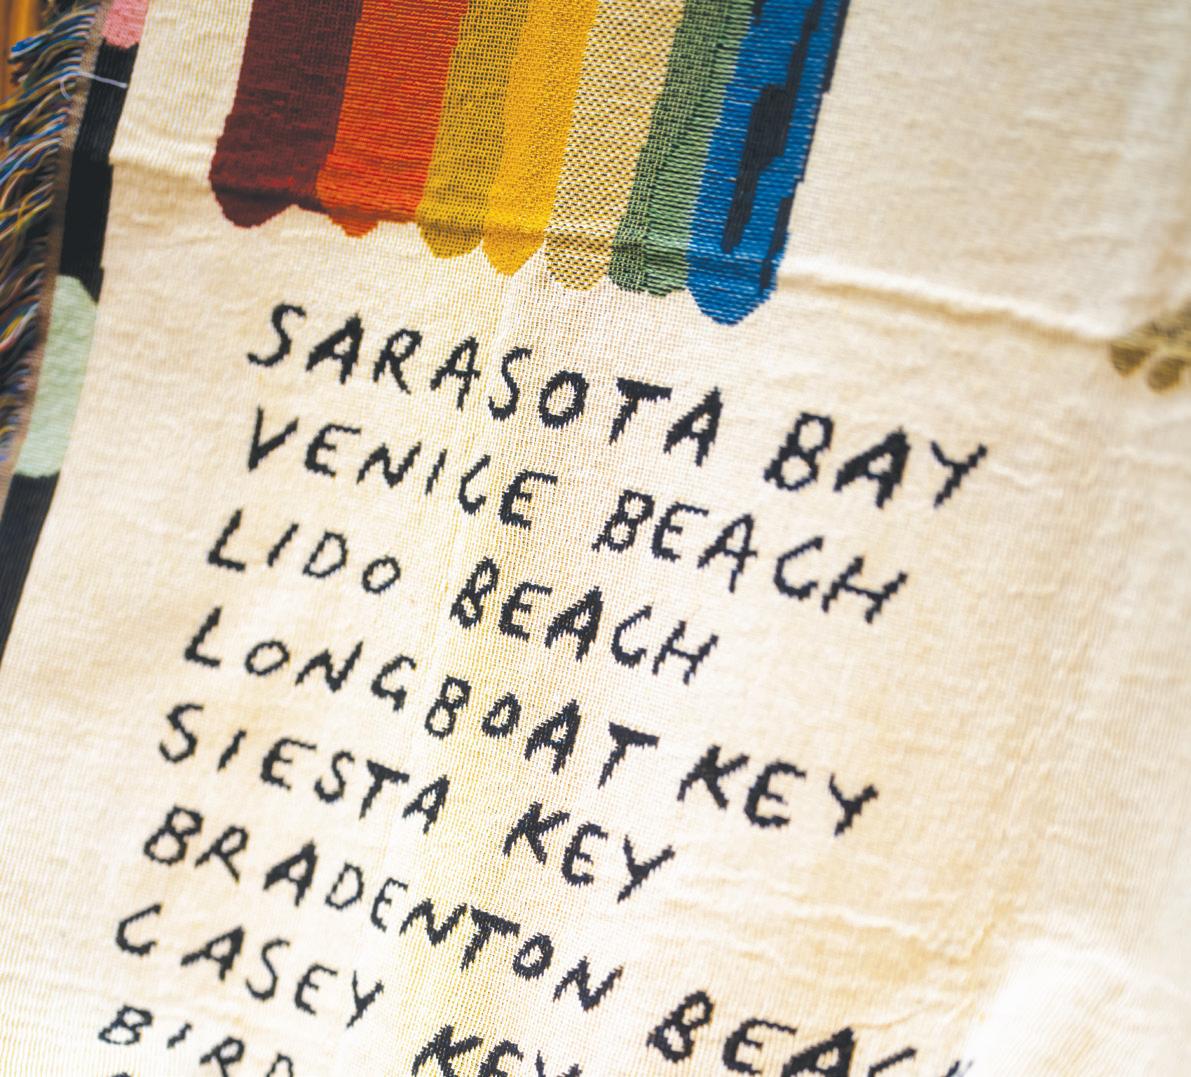 SARASOTA BAY
VENICE BEACH
LIDO BEACH
LONGBOAT KEY
SIESTA KEY
BRADENTON BEACH
CASEY KEY
BIRD